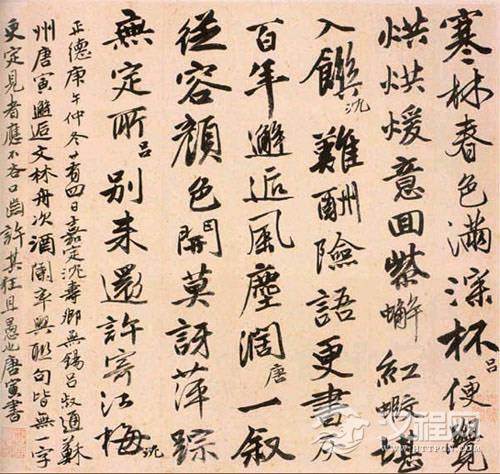 寒林春色滿深杯呂便覺
烘烘煖意回紫蠏紅蝦堪
入饌沈難酬險語更書灰
百年邂逅風塵濶唐一叙
從容顔色開莫訝萍踪
無定所呂別来還許寄江梅沈
正德庚午仲冬廿有四日嘉定沈壽卿無錫呂叔通蘇
州唐寅邂逅文林舟次酒闌率興聯句皆無一字
更定見者應不吝口齒許其狂且愚也唐寅書